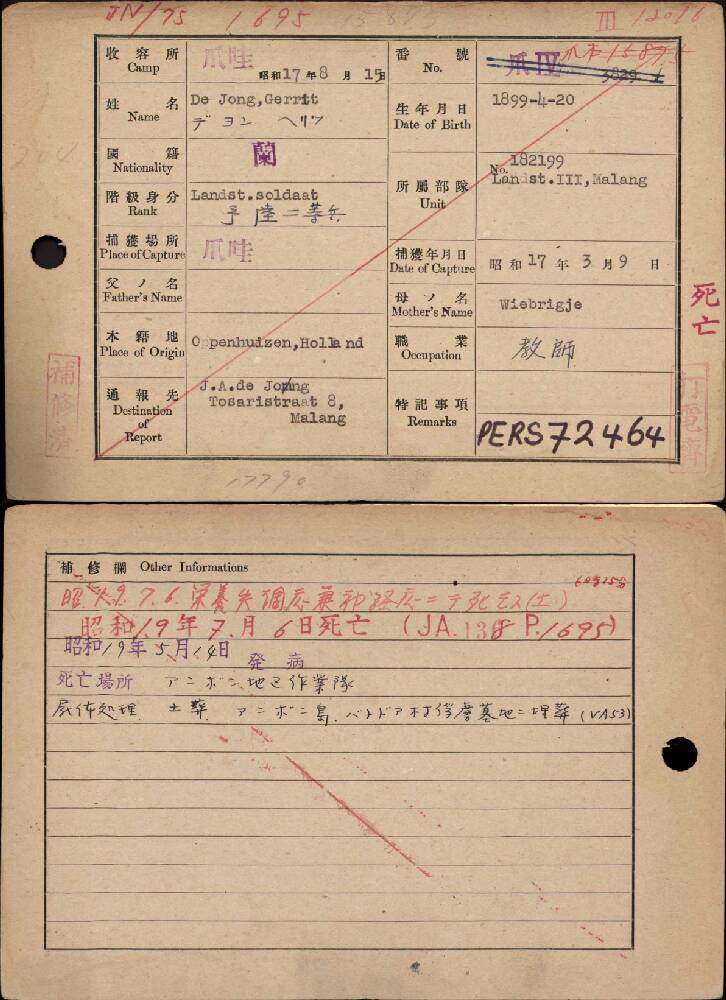 JN/75 1695 III 12016
收容所 Camp 爪哇 昭和17年8月15日
番號 No. 爪IV 3829
姓名 Name De Jong,Gerrit
デ ヨン ヘリツ
生年月日 Date of Birth 1899-4-20
國籍 Nationality 蘭
所屬部隊 Unit No.182199
Landst.III,Malang
階級身分 Rank Landst.soldaat
陸二等兵
捕獲場所 Place of Capture 爪哇
捕獲年月日 Date of Capture 昭和17年3月9日
父ノ名 Father's Name
母ノ名 Mother's Name Wiebrigje
本籍地 Place of Origin Oppenhuizen,Holland
職業 Occupation 教師
通報先 Destination of Report
J.A.de Jong
Tosaristraat 8,
Malang
特記事項 Remarks PERS72464
死亡
補修済
17790
補修欄 Other Informations
昭19.7.6.栄養失調症兼脚気症ニテ死亡(土)
昭和19年7月6日死亡 (JA.138 P.1695)
昭和19年5月14日 発病
死亡場所 アンボン地区作業隊
屍体処理 土葬 アンボン島
墓地ニ埋葬 (VA53)